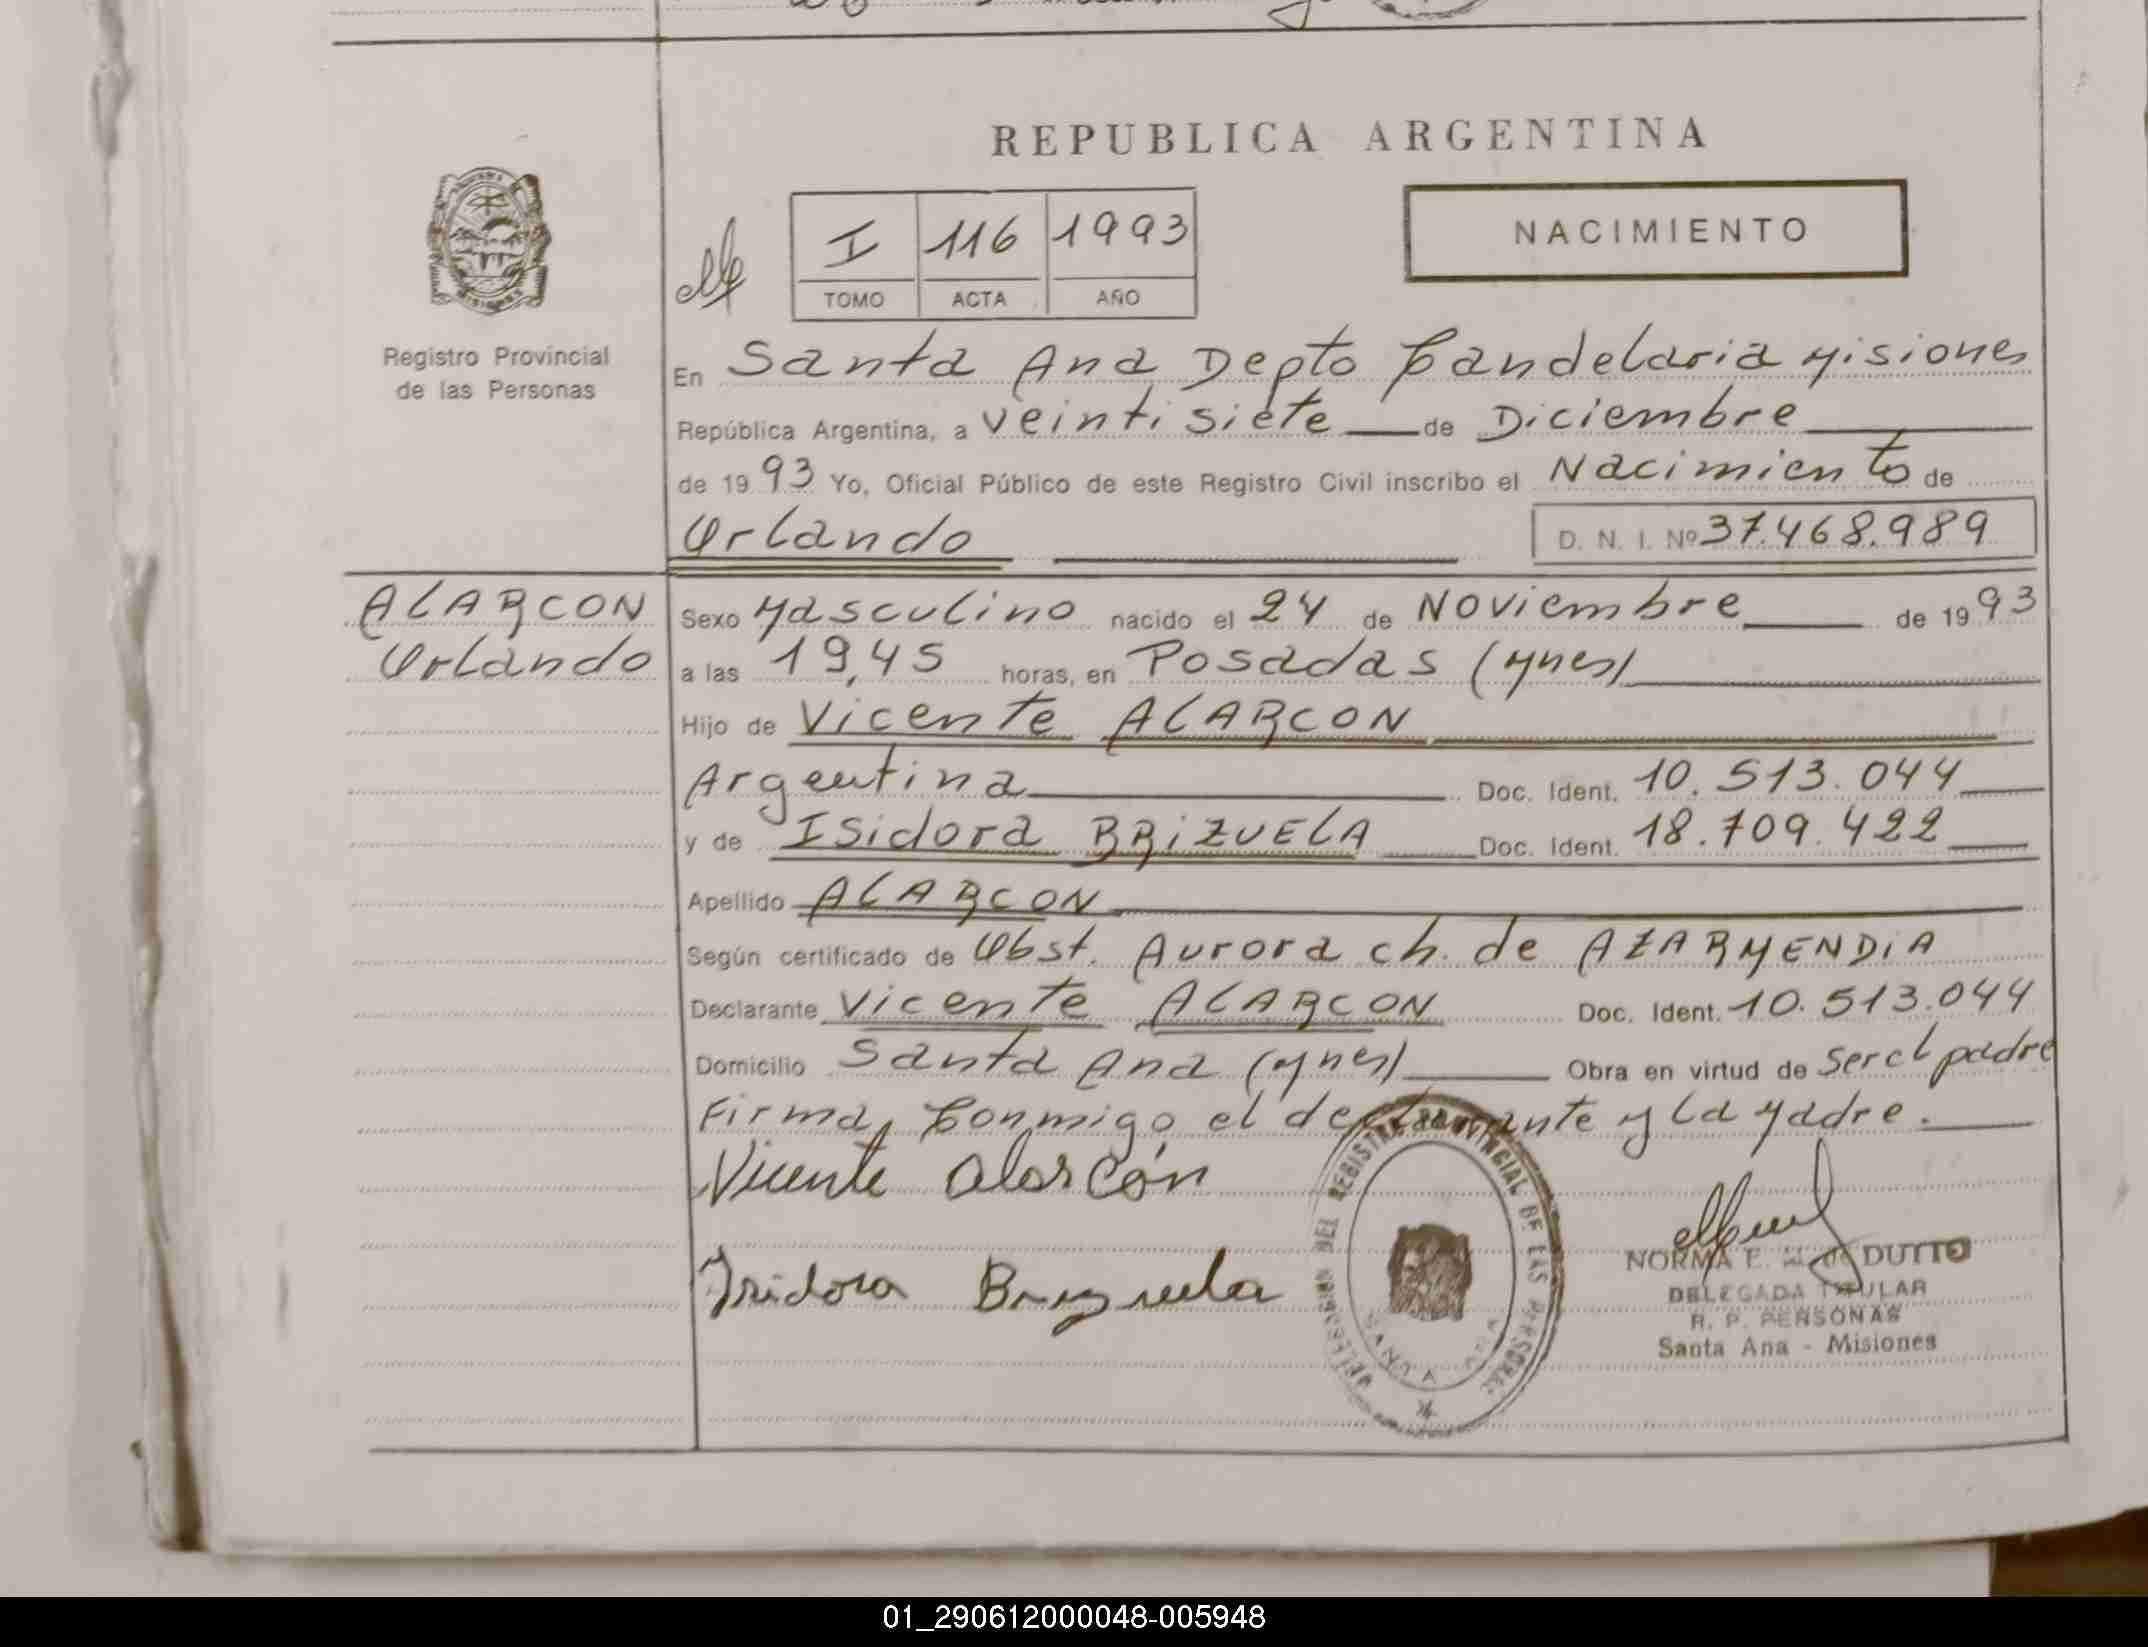 REPUBLICA ARGENTINA
I 116 1993
TOMO ACTA AÑO
NACIMIENTO
Registro Provincial
de las Personas
En Santa Ana Depto Candelaria Misiones
República Argentina, a veintisiete de Diciembre
de 1993 Yo, Oficial Público de este Registro Civil inscribo el Nacimiento de
Orlando D. N. I. Nº 37.468.989
ALARCON
Orlando
Sexo Masculino nacido el 24 de Noviembre de 1993
a las 19,45 horas, en Posadas (Mnes)
Hijo de Vicente ALARCON
Argentina Doc. Ident. 10.513.044
y de Isidora BRIZUELA Doc. Ident. 18.709.422
Apellido ALARCON
Según certificado de Obst. Aurora ch. de AZARMENDIA
Declarante Vicente ALARCON Doc. Ident. 10.513.044
Domicilio Santa Ana (Mnes) Obra en virtud de ser el padre
Firma, Conmigo el declarante y la Madre.
Vicente Alarcón
Isidora Brizuela
DELEGACION DEL REGISTRO PROVINCIAL DE LAS PERSONAS
SANTA ANA
NORMA E. de DUTTO
DELEGADA TITULAR
R. P. PERSONAS
Santa Ana - Misiones
01_290612000048-005948